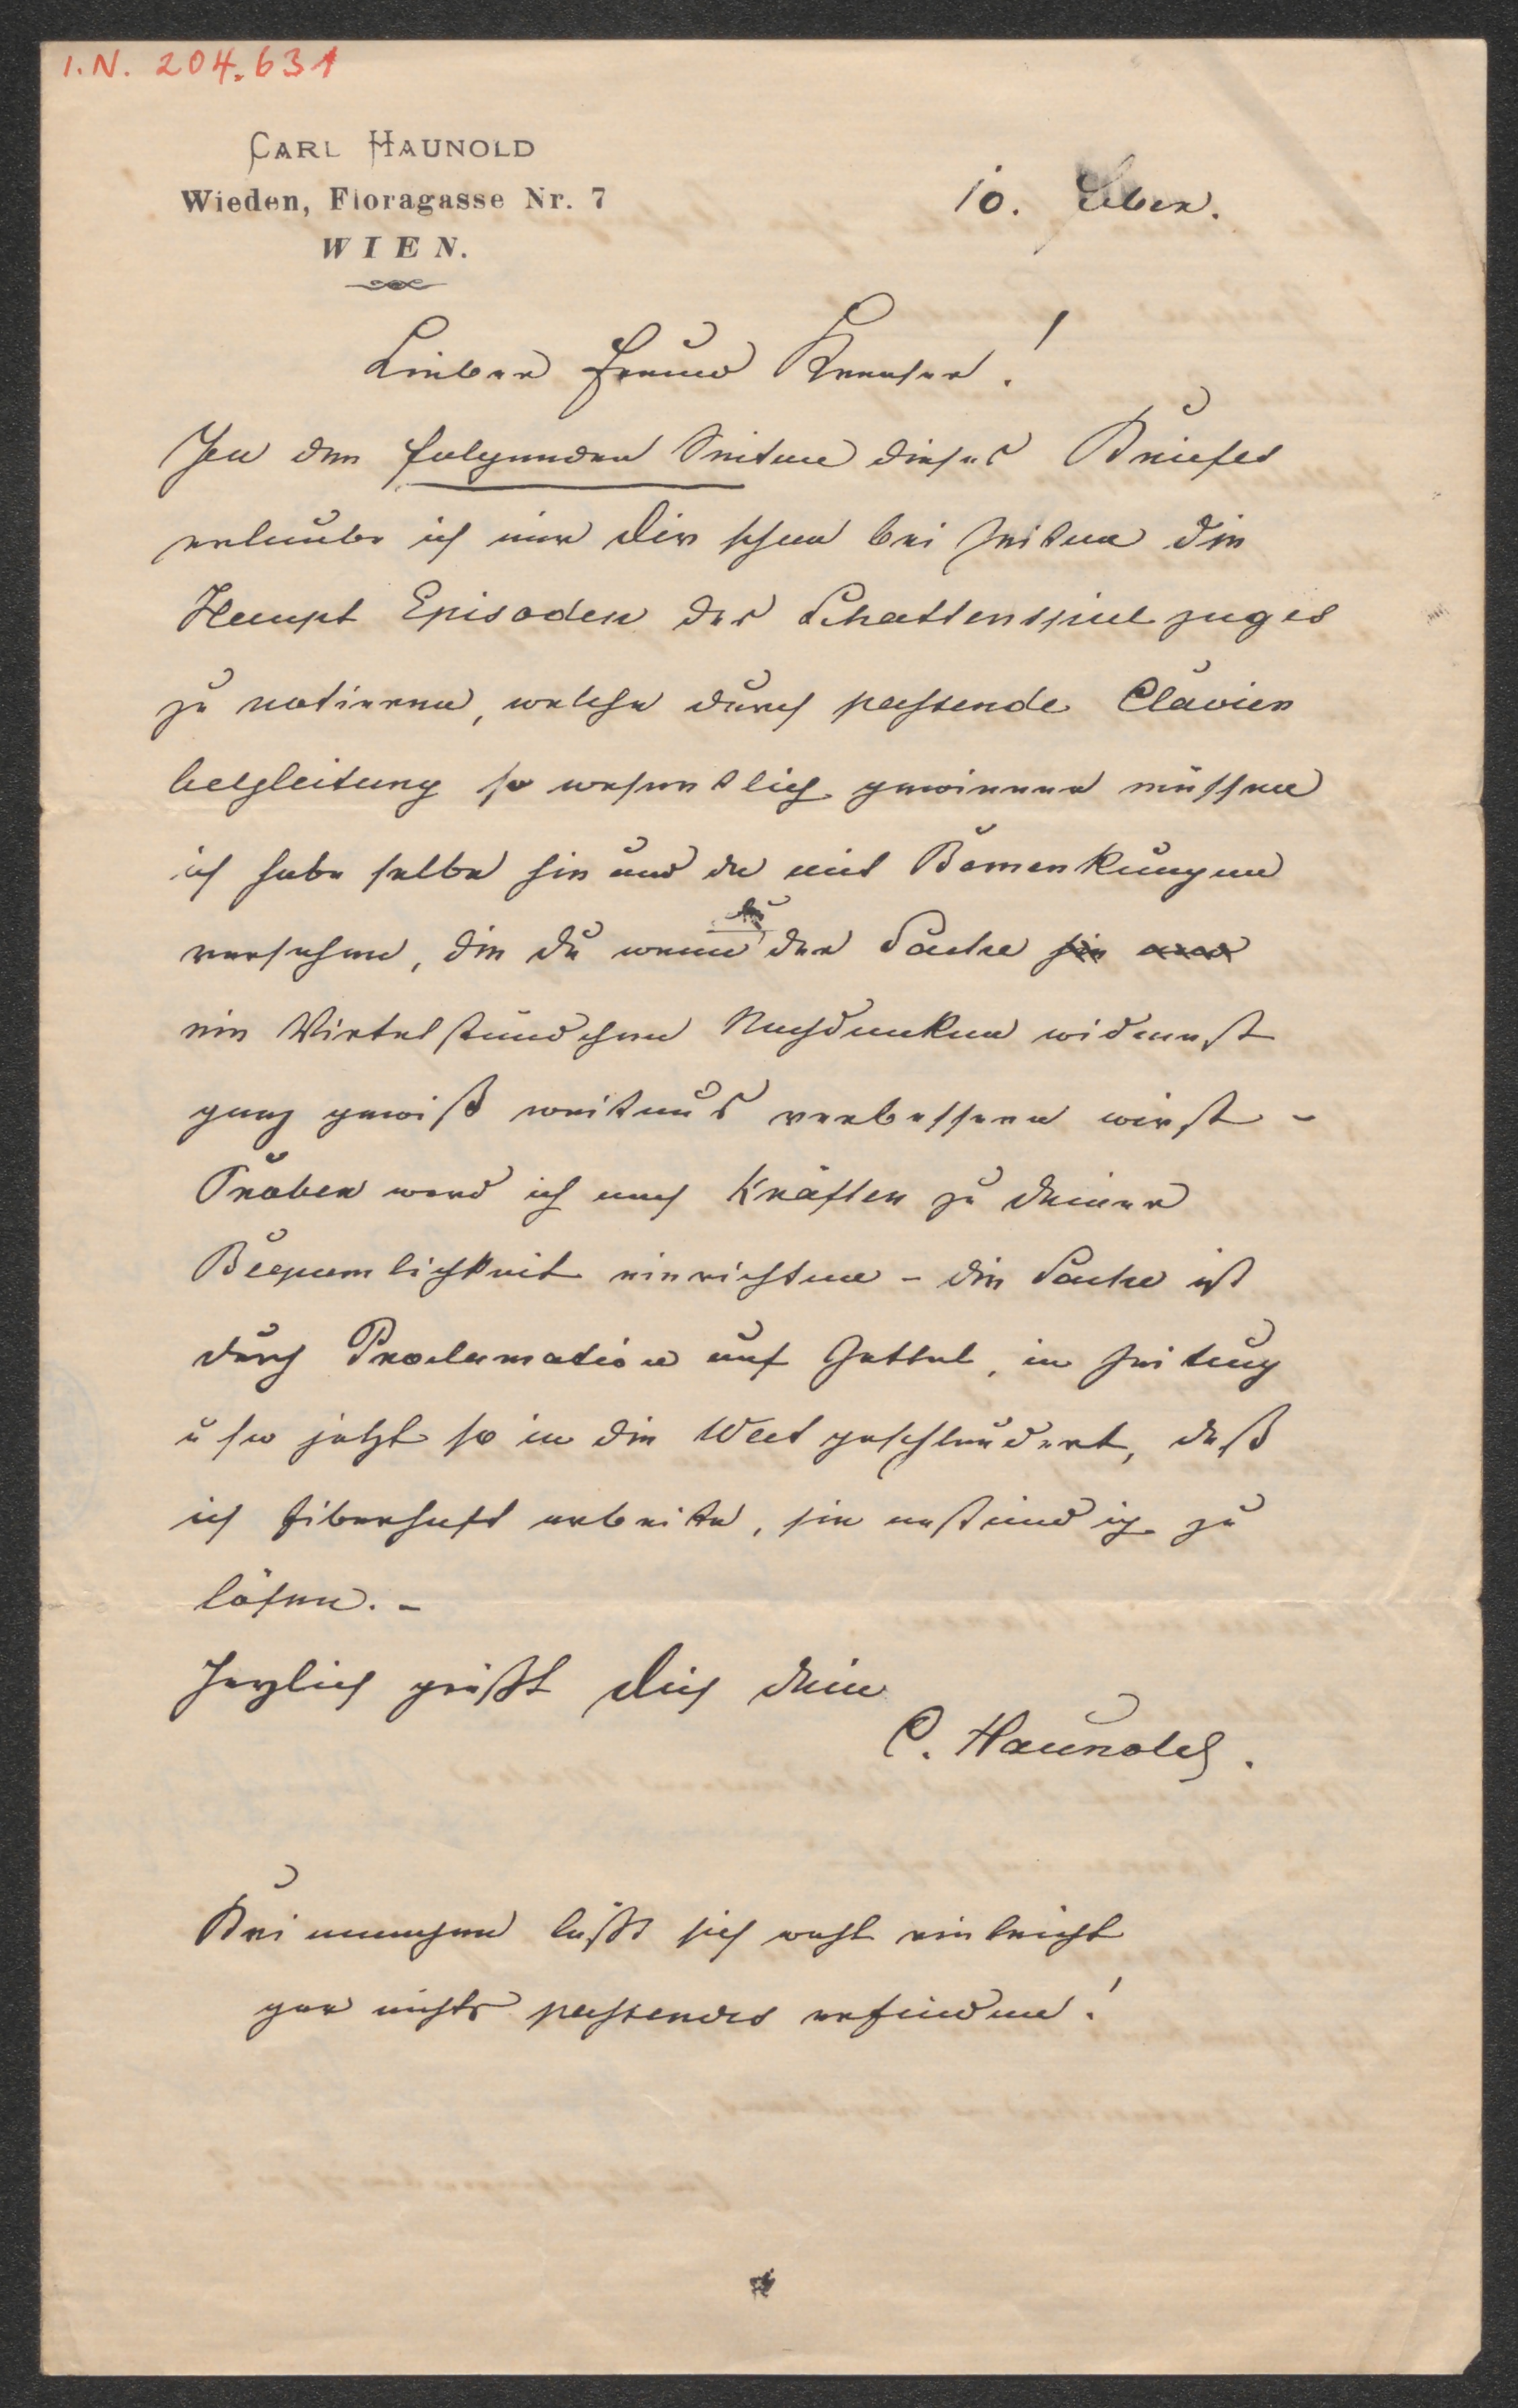 I.N. 204.631
CARL HAUNOLD
Wieden, Floragasse Nr. 7
WIEN.
10.
Lieber Freund
In den folgenden Seiten dieses Briefes
erlaube ich mir Dir schon bei Zeiten die
Haupt Episoden des Schattenspielzuges
zu notieren, welche durch passende Clavier
begleitung so wesentlich gewinnen müssen
ich habe selbe hin und da mit Bemerkungen
versehen, die du wenn du der Sache hin und
ein Viertelstündchen Nachdenken widmest
ganz gewiß weitaus verbessern wirst –
Proben werd ich nach Kräften zu deiner
Bequemlichkeit einrichten – die Sache ist
durch Proclamation auf Zettel, in Zeitung
u sw jetzt so in die Welt geschleudert, daß
ich fieberhaft arbeite, sie anständig zu
lösen. –
Herzlich grüßt Dich dein
C. Haunold.
Bei manchen läßt sich wohl vielleicht
gar nichts passendes erfinden!